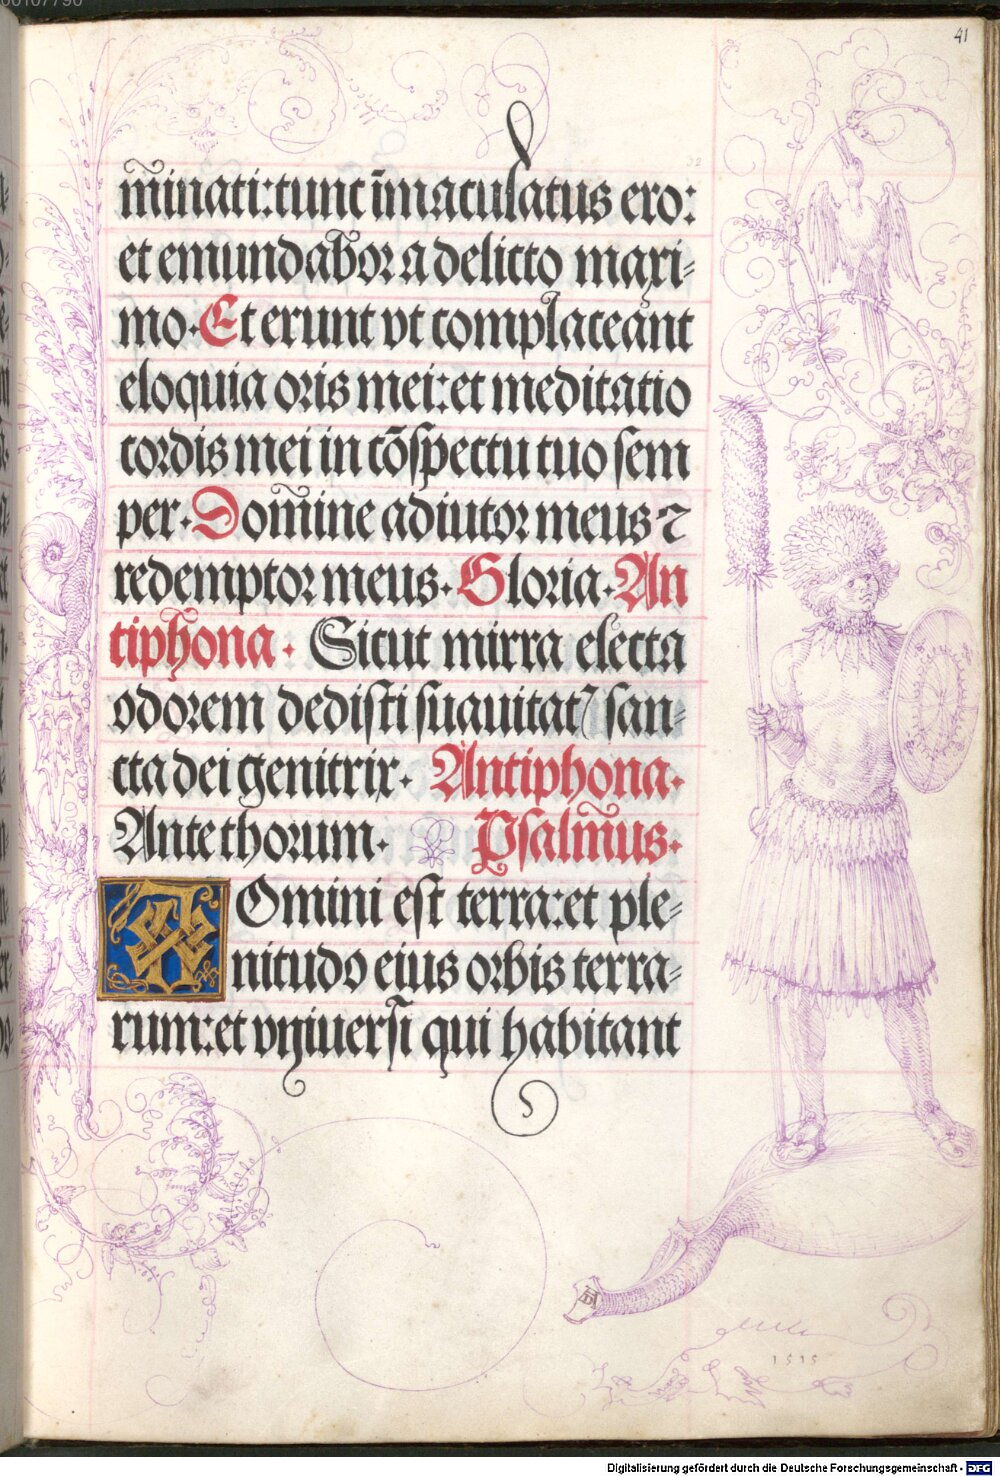 00107790
41
32
m̄inati: tunc īmaculatus ero:
et emundabor a delicto maxi-
mo. Et erunt vt complaceant
eloquia oris mei: et meditatio
cordis mei in cōspectu tuo sem
per. Domīne adiutor meus ⁊
redemptor meus. Gloria. An
tiphona. Sicut mirra electa
odorem dedisti suauitatꝭ san-
cta dei genitrix. Antiphona.
Ante thorum. Psalm̄us.
DOmini est terra: et ple-
nitudo eius orbis terra-
rum: et vniuersi qui habitant
AD
1515
Digitalisierung gefördert durch die Deutsche Forschungsgemeinschaft - DFG